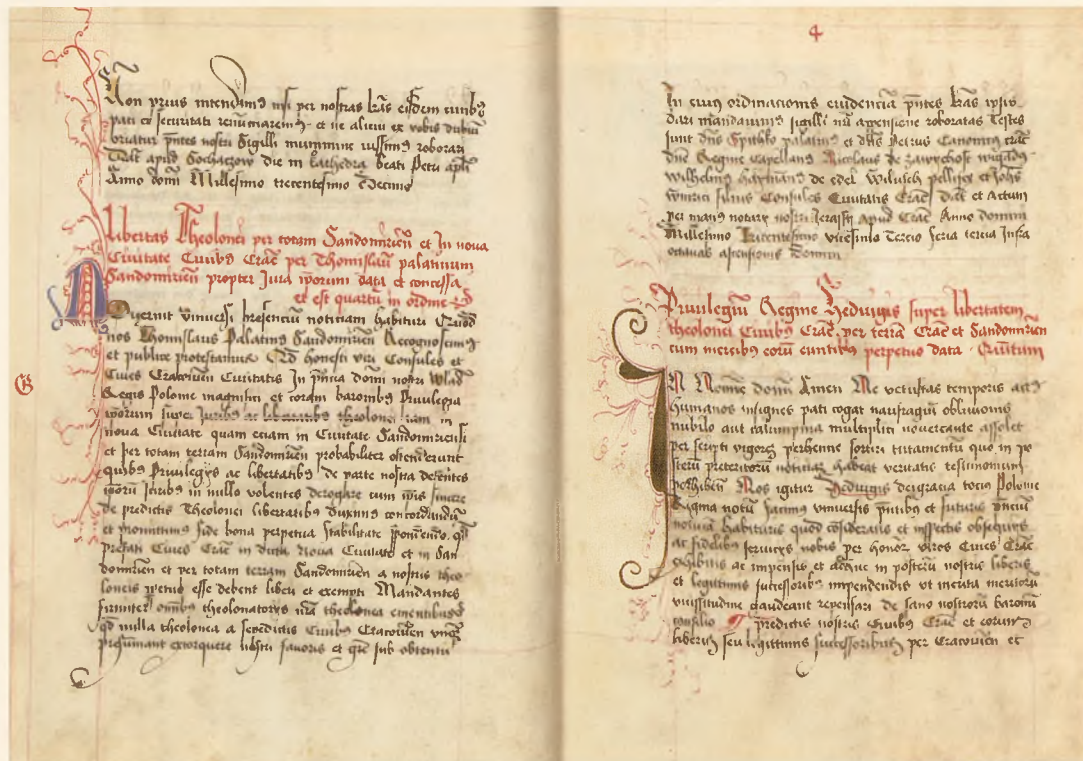 Non prius intendimus nisi per nostras lras eisdem civibus
pati et securitati renunciaremus et ne alicui ex vobis dubium
oriatur pntes nostri Sigilli munimine iussimus roborari
Dat apud Sochaczow die in kathedra beati Petri apli
Anno domini Millesimo trecentesimo Decimo
Libertas Theolonei per totam Sandomirien et In nova
Civitate Civibus Crac per Thomislaum palatinum
Sandomirien propter Jura ipsorum data et concessa
et est quartum in ordine
Noverint universi presencium noticiam habituri Quod
nos Thomislaus Palatinus Sandomirien Recognoscimus
et publice protestamur Quod honesti viri Consules et
Cives Cracovien Civitatis In pncia domini nostri Wlad
Regis Polonie magnifici et coram baronibus Privilegia
ipsorum super Juribus ac libertatibus theolonei in
nova Civitate quam eciam in Civitate Sandomiriensi
et per totam terram Sandomirien probabiliter ostenderunt
quibus Privilegys ac libertatibus de parte nostra
ipsorum Juribus in nullo volentes derogare cum ipsis
de predictis Theolonei libertatibus duximus concordandum
et promittimus fide bona perpetua stabilitate
prefati Cives Crac in dicta Nova Civitate et in San
domirien et per totam terram Sandomirien a nostris theo
loneis penitus esse debent liberi et exempti Mandantes
firmiter omnibus theolonatorys nra theolonea ementibus
quod nulla theolonea a sepedictis Civibus Cracovien
presumant extorquere nostri favoris et gre sub obtentu
4
In cuius ordinacionis evidenciam pntes lras ipsis
dari mandavimus sigilli nri appensione roboratas Testes
sunt dns Spithko palatinus et dns Petrus Canonicus Crac
dne Regine Capellanus Nicolaus de Zawychost
Wilhelmus Hermanus de Wilusch pellifex et Johs
filius Consules Civitatis Crac dat et Actum
per manus notary nostri apud Crac Anno domini
Millesimo Tricentesimo vicesimo Tercio feria tercia infra
octavas ascensionis domini
Privilegium Regine Heduigis super libertatem
theolonei Civibus Crac per terram Crac et Sandomirien
cum mercibus eorum euntibus perpetuo data Quintum
In Nomine domini Amen Ne vetustas temporis actus
humanos insignes pati cogat naufragium oblivionis
nubilo aut calumpnia multiplici novercante assolet
per scripti vigorem perhenne sortiri
sterum preteritorum noticiam habeat veritatis testimonium
perhiberi Nos igitur Heduigis dei gracia tocius Polonie
Regina notum facimus universis pntibus et futuris pncium
noticiam habituris quod consideratis et inspectis obsequys
ac fidelibus servicys nobis per honor viros Cives Crac
exhibitis ac impensis et adhuc in posterum nostris liberis
et legitimis successoribus impendendis ut merita meritorum
vicissitudine gaudeant repensari de sano nostrorum baronum
consilio predictis nostris Civibus Crac et eorum
liberis seu legittimis successoribus per Cracovien et